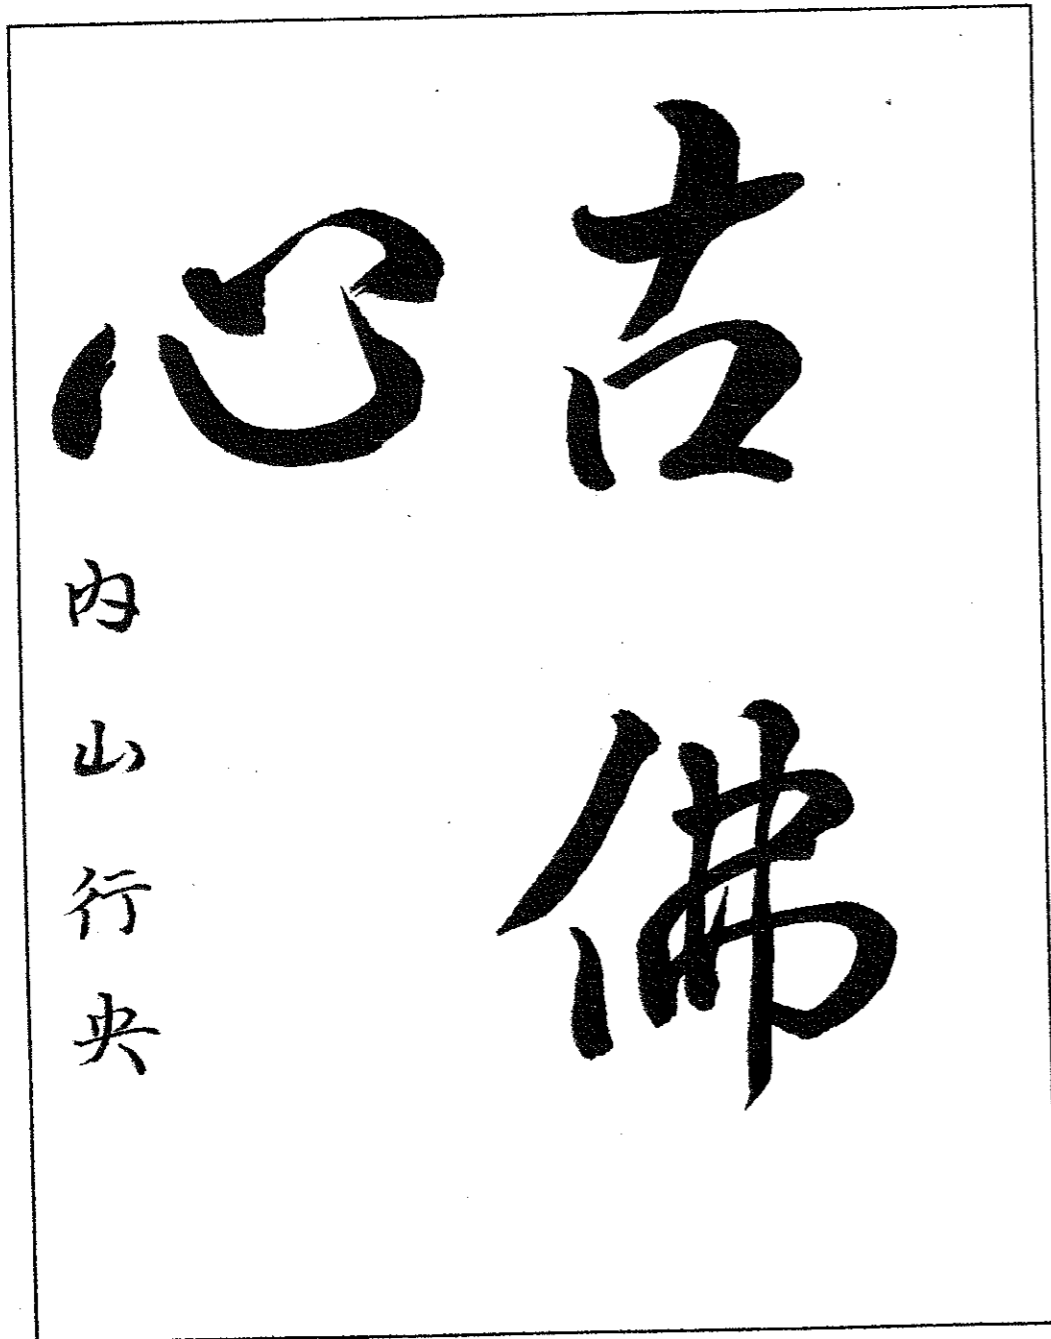 古佛
心
内山行央